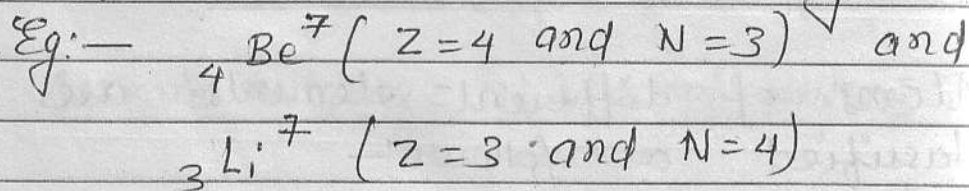 Eg:— ₄Be⁷ ( Z = 4 and N = 3) and
₃Li⁷ ( Z = 3 and N = 4)